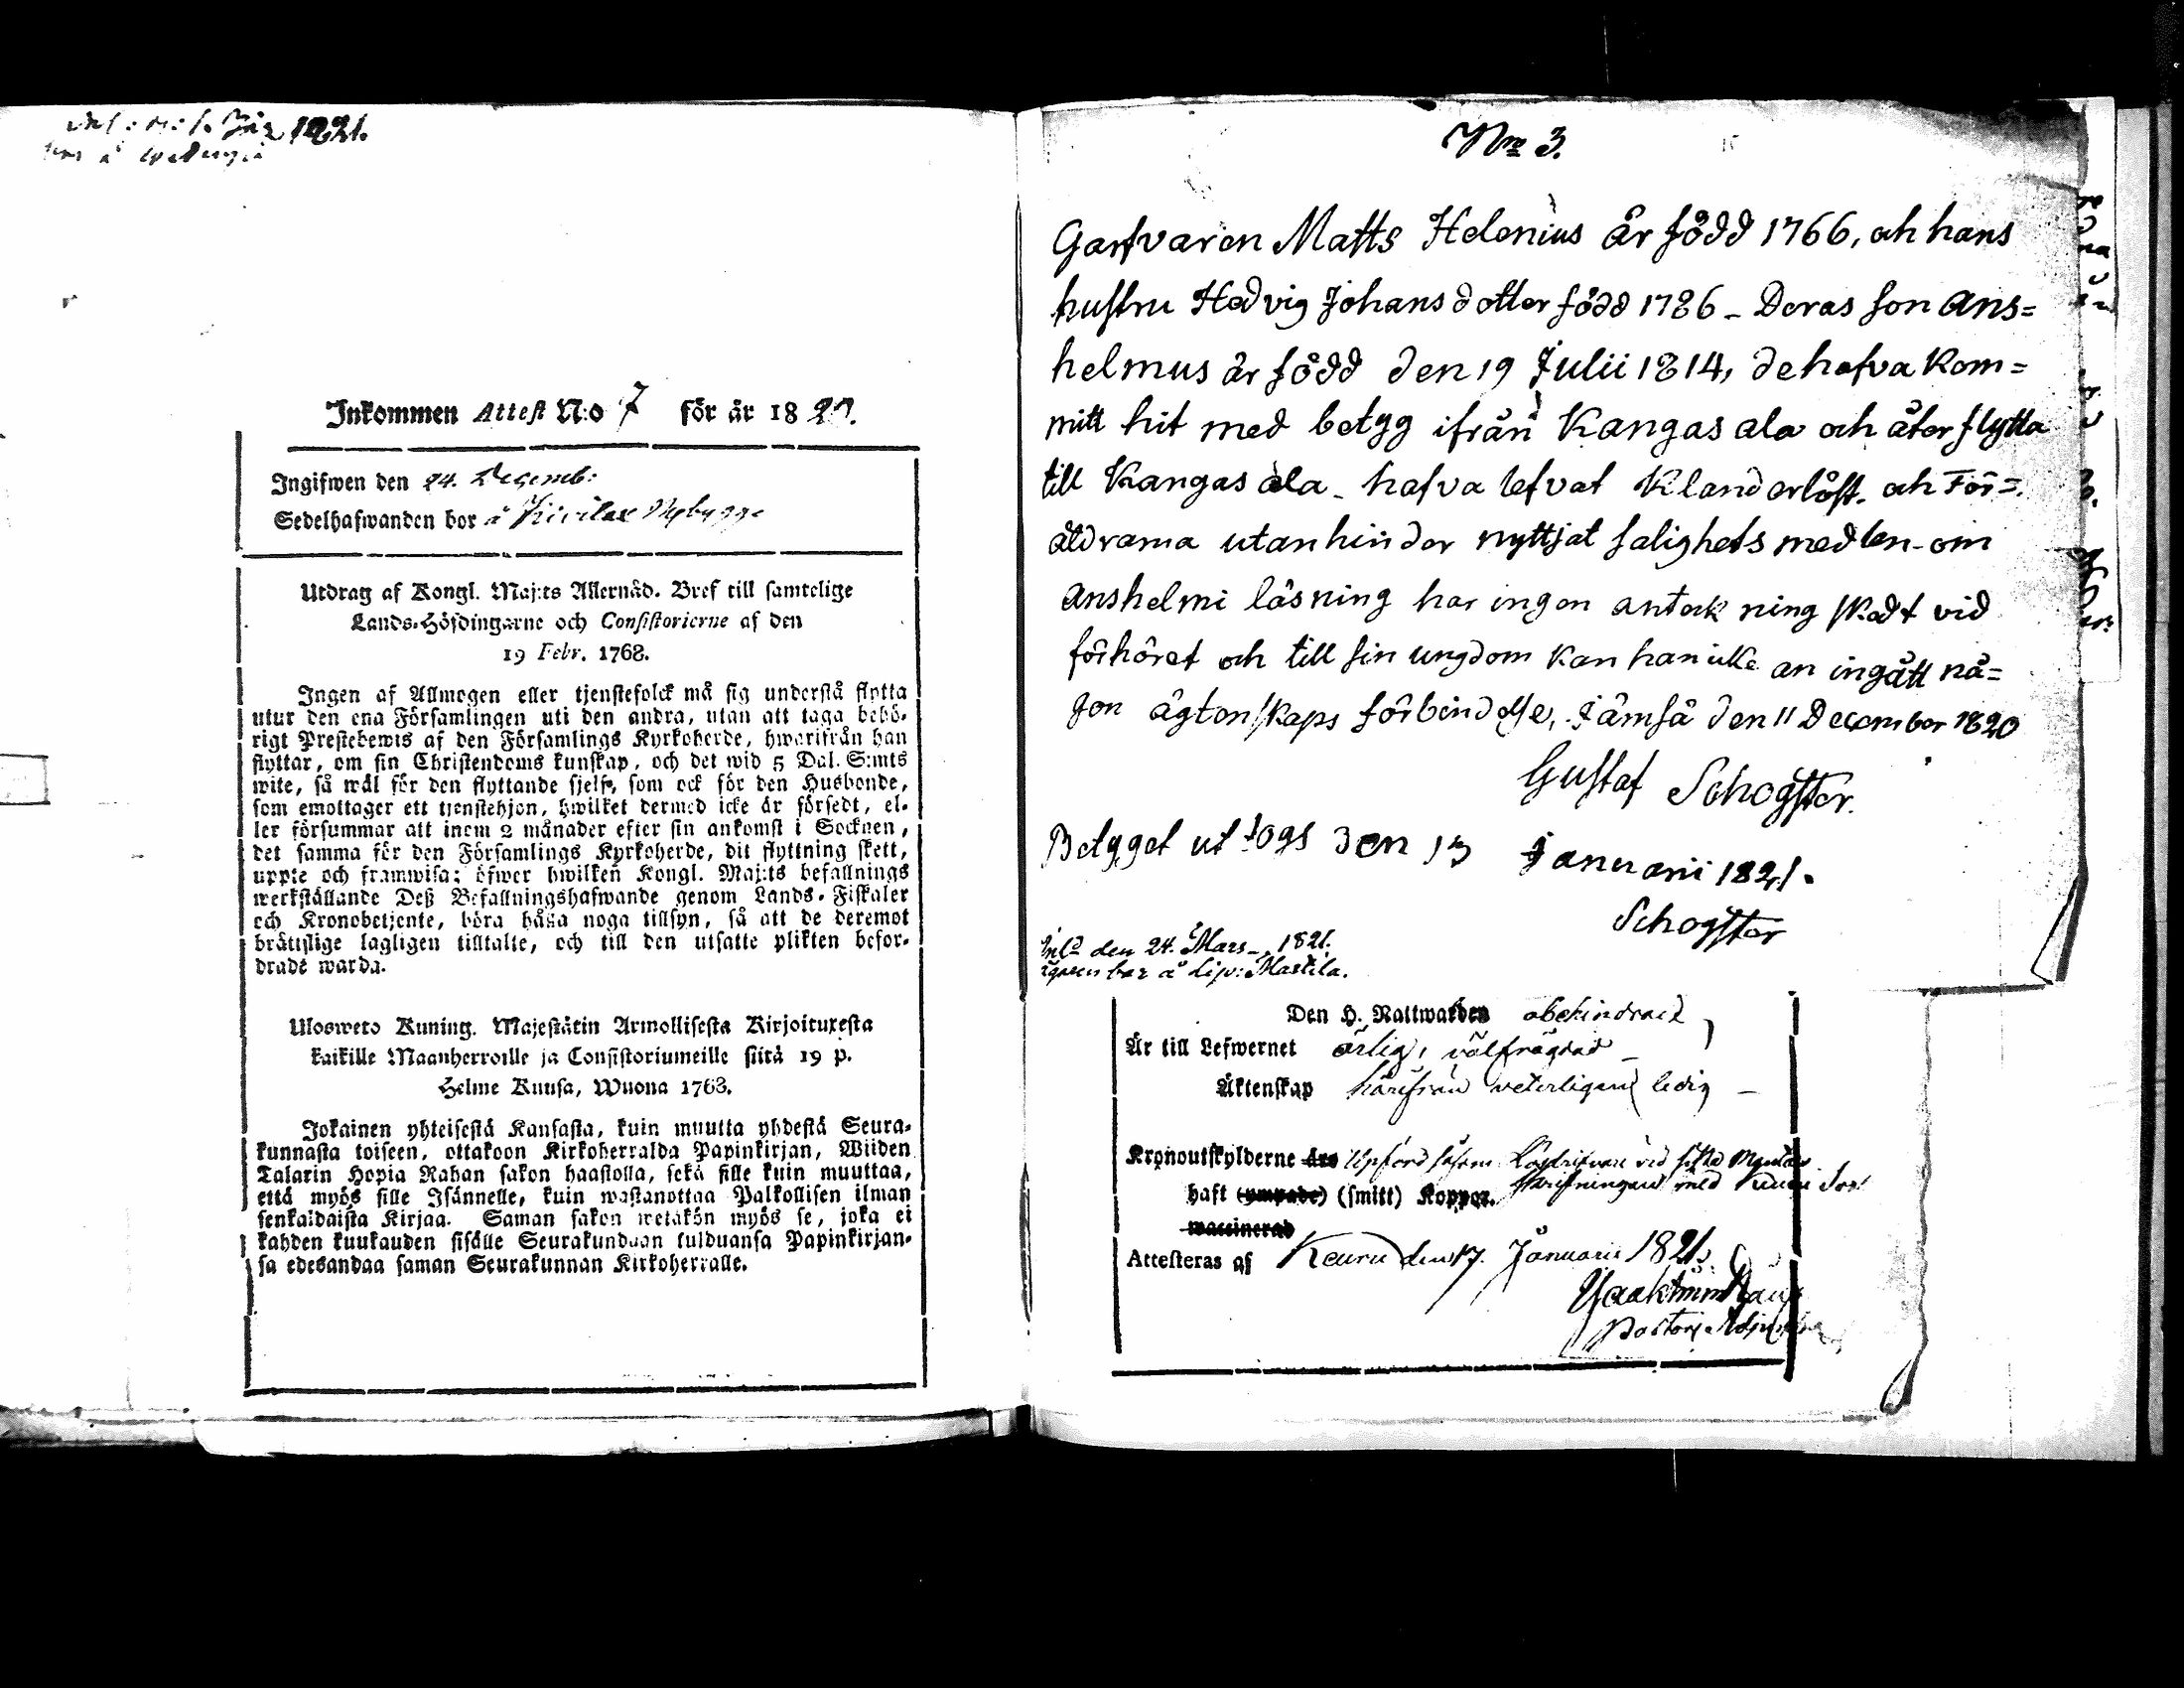 1821.
Inkommen Attest N:o 7 för år 1820.
Ingifwen den 24. Decemb:
Sedelhafwanden bor å Kivilax Nybygge
Utdrag af Kongl. Maj:ts Allernåd. Bref till samtelige
Lands-Höfdingarne och Consistorierne af den
19 Febr. 1768.
Ingen af Allmogen eller tjenstefolck må sig understå flytta
utur den ena Församlingen uti den andra, utan att taga behö-
rigt Prestebewis af den Församlings Kyrkoherde, hwarifrån han
flyttar, om sin Christendoms kunskap, och det wid 5 Dal. S:mts
wite, så wäl för den flyttande sjelf, som ock för den Husbonde,
som emottager ett tjenstehjon, hwilket dermed icke är försedt, el-
ler försummar att inom 2 månader efter sin ankomst i Socknen,
det samma för den Församlings Kyrkoherde, dit flyttning skett,
uppte och framwisa; öfwer hwilken Kongl. Maj:ts befallnings
werkställande Deß Befallningshafwande genom Lands-Fiskaler
och Kronobetjente, böra hålla noga tillsyn, så att de deremot
bråttslige lagligen tilltalte, och till den utsatte plikten befor-
drade warda.
Ulosweto Kuning. Majestätin Armollisesta Kirjoituxesta
kaikille Maanherroille ja Consistoriumeille siitä 19 p.
Helme Kuusa, Wuona 1768.
Jokainen yhteisestä Kansasta, kuin muutta yhdestä Seura-
kunnasta toiseen, ottakoon Kirkoherralda Papinkirjan, Wiiden
Talarin Hopia Rahan sakon haastolla, sekä sille kuin muuttaa,
että myös sille Isännelle, kuin wastanottaa Palkollisen ilman
senkaldaista Kirjaa. Saman sakon wetäkön myös se, joka ei
kahden kuukauden sisälle Seurakunduan tulduansa Papinkirjan-
sa edesandaa saman Seurakunnan Kirkoherralle.
Nro 3.
Garfvaren Matts Helenius är född 1766, och hans
hustru Hedvig Johansdotter född 1786 - Deras son Ans=
helmus är född den 19 Julii 1814, de hafva kom=
mitt hit med betyg ifrån Kangasala och åter flytta
till Kangasala - hafva lefvat Klanderlöst. och För=
äldrarna utan hinder nyttjat salighets medlen - om
Anshelmi läsning har ingen anteckning skedt vid
förhöret och till sin ungdom kan han icke an ingått nå=
gon ägtenskaps förbindelse, Jämsä den 11 December 1820
Gustaf Schogster.
Betyget uttogs den 13 Januarii 1821.
Schogster
Inl. den 24. Mars 1821.
ägaren bor å Lip: Mattila.
Den H. Nattwarden obehindrad
Är till Lefwernet ärlig, välfrägdad
Äktenskap härifrån veterligen ledig
Kronoutskylderne äro Upförd såsom vid sista
haft (ympade) (smitt) Koppor.
waccinerad
Attesteras af Keuru den 17. Januarii 1821.